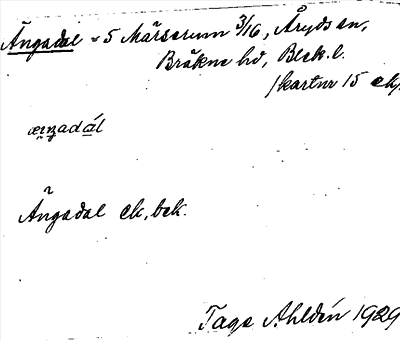 Ängadal ~ 5 Märserum 3/16, Åryds sn,
Bräkne hd, Blek. l.
/kartnr 15 ek/.
Ängadal ek, bek.
Tage Ahldén 1929